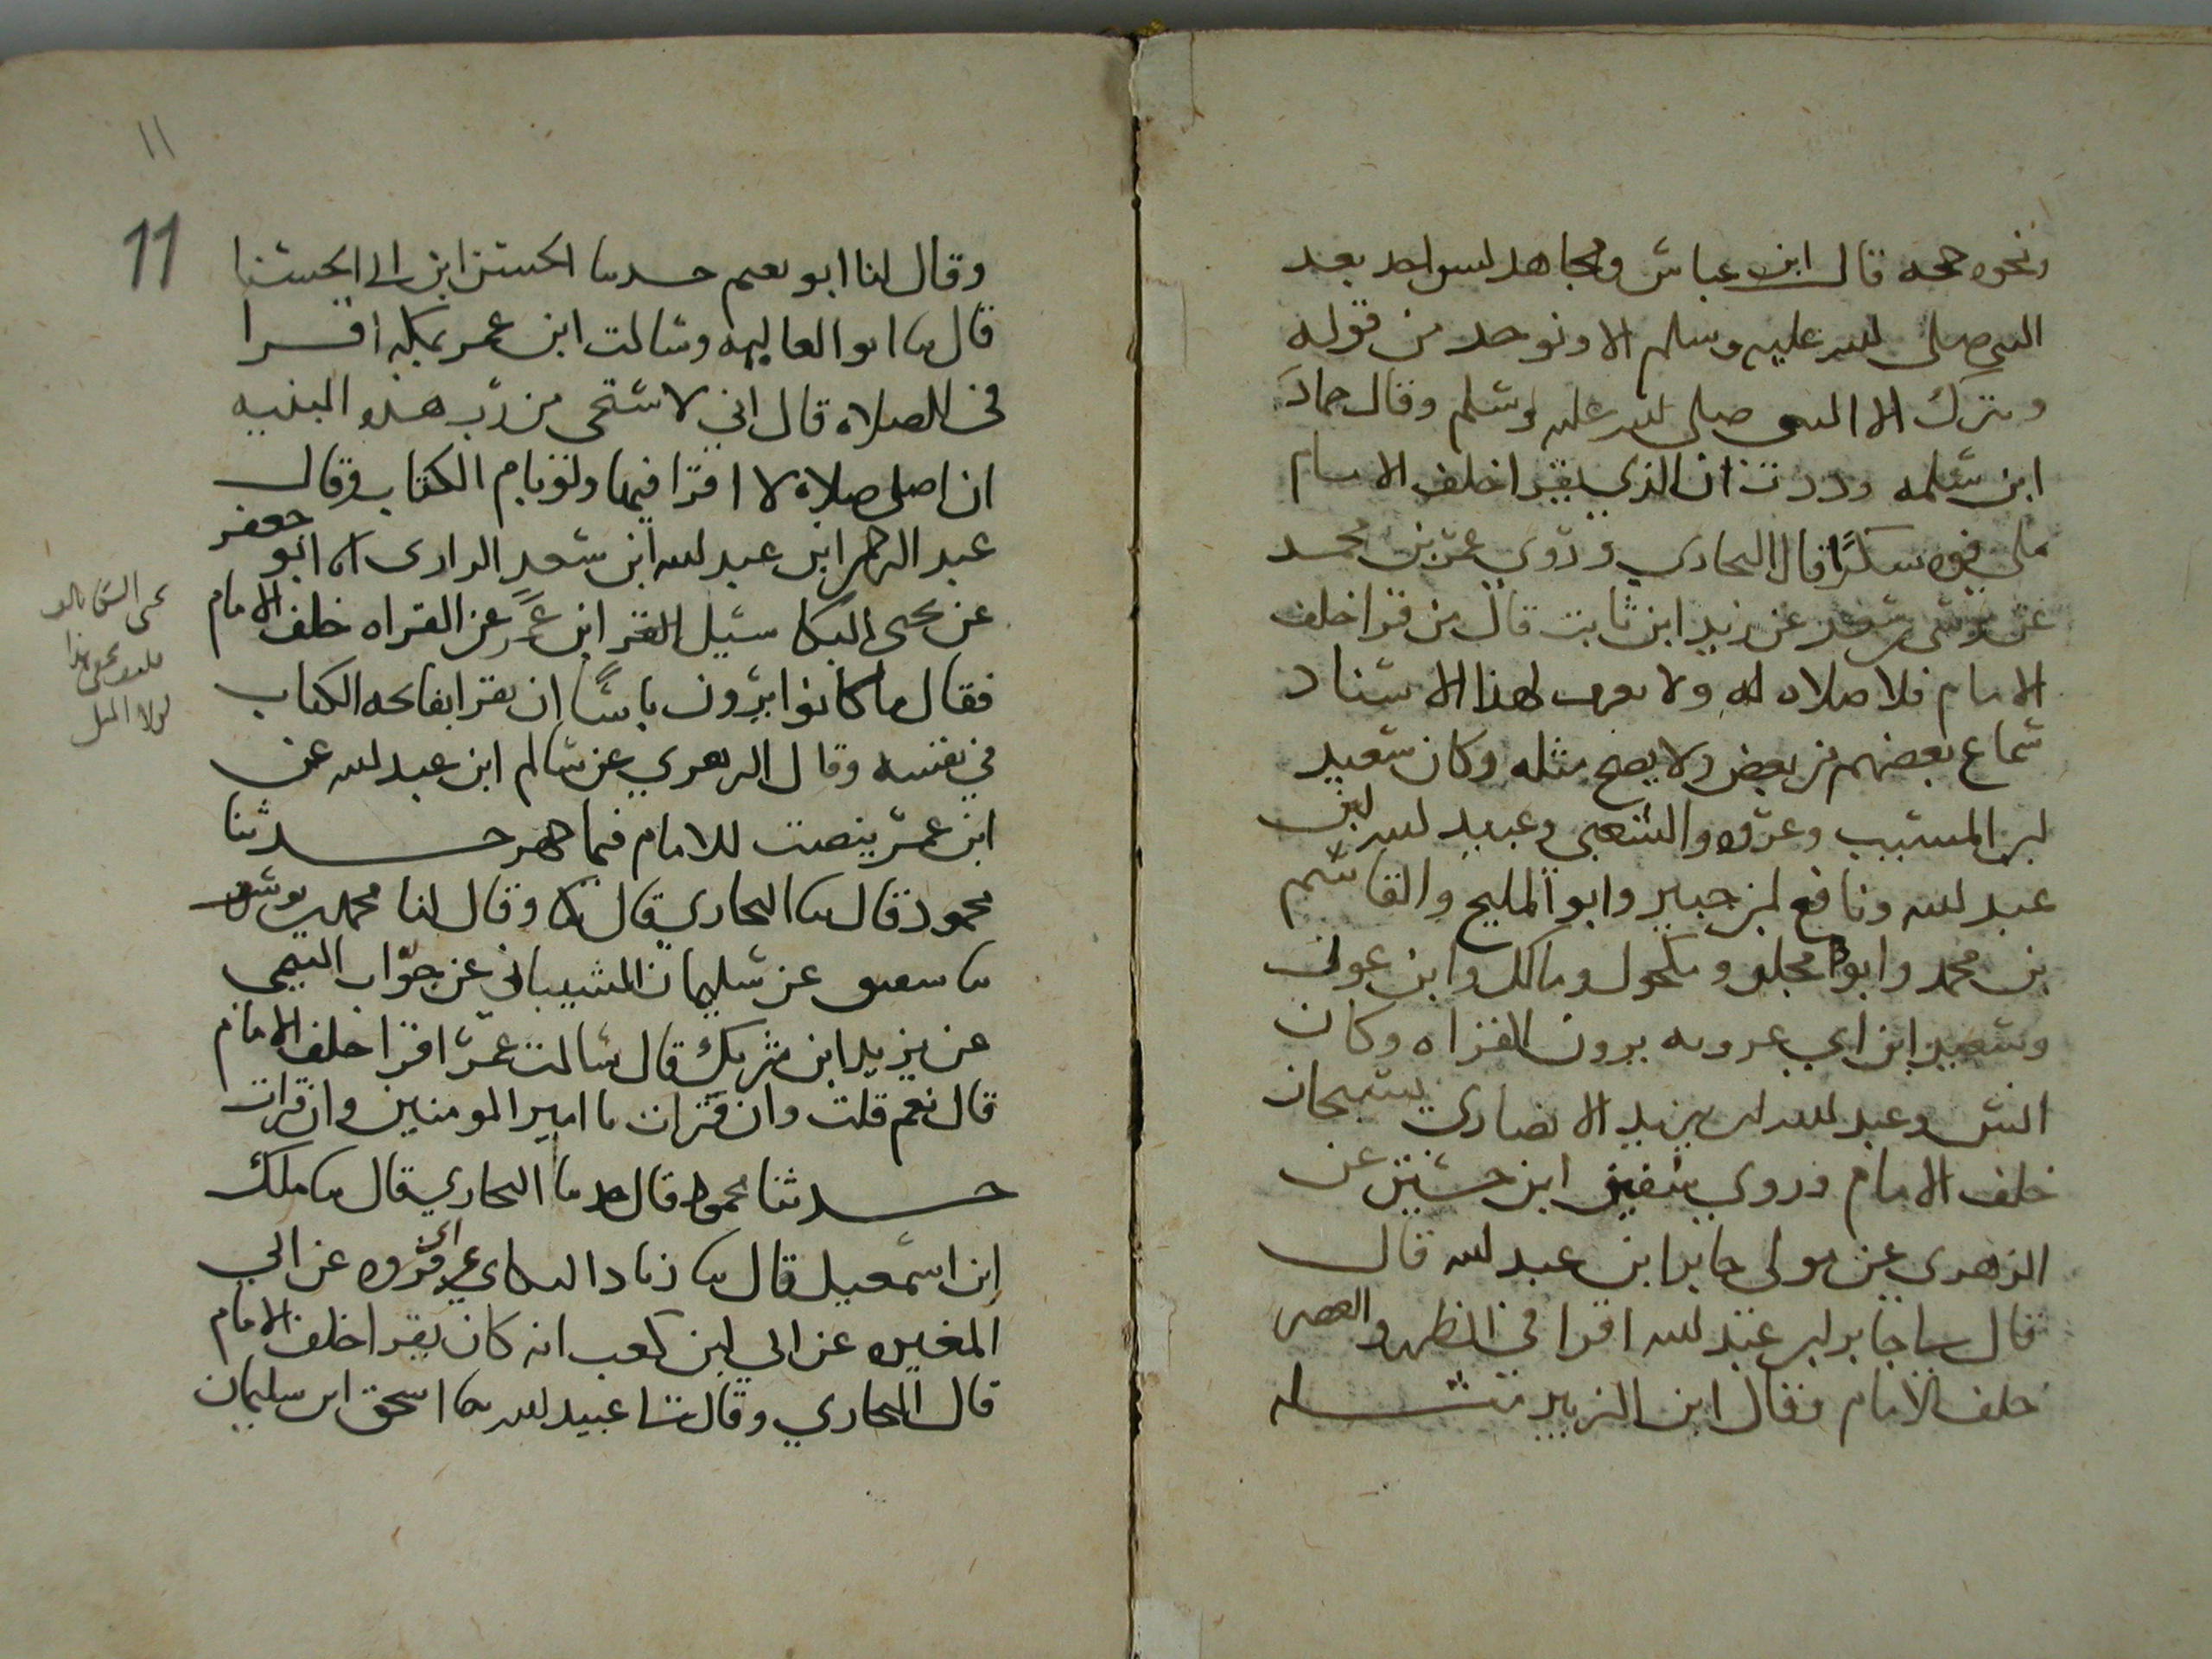 ونحوه حجه قال ابن عباس ومجاهد ليس احد بعد
النبي صلى الله عليه وسلم الا ونوخذ من قوله
ويترك الا النبي صلى الله عليه وسلم وقال حماد
ابن سلمه وددت ان الذي يقرا خلف الامام
ملى فوه سكرا قال البخاري وروي عمر بن محمد
عن موسى بن سعد عن زيد ابن ثابت قال من قرا خلف
الامام فلا صلاه له ولا يعرف لهذا الاسناد
سماع بعضهم من بعض ولا يصح مثله وكان سعيد
ابن المسيب وعروه والشعبي وعبيد الله ابن
عبد الله ونافع ابن جبير وابو المليح والقاسم
بن محمد وابو مجلز ومكحول ومالك وابن عون
وسعيد ابن ابي عروبه يرون القراه وكان
انس وعبد الله ابن يزيد الانصاري يسبحان
خلف الامام وروى سفين ابن حسين عن
الزهري عن مولى جابر ابن عبد الله قال
قال لي جابر ابن عبد الله اقرا في الظهر والعصر
خلف الامام فقال ابن الزبير مثله
١١
11
وقال لنا ابو نعيم حدثنا الحسن ابن ابي الحسنا
قال نا ابو العاليه وسالت ابن عمر بمكه اقرا
في الصلاه قال اني لاستحي من رب هذه البنيه
ان اصلي صلاة لا اقرا فيها ولو بام الكتاب وقال
عبد الرحمن ابن عبد الله ابن سعد الرازي انا ابو جعفر
عن يحيى البكا سئيل ابن عمر عن القراه خلف الامام
فقال ما كانوا يرون باسا ان يقرا بفاتحه الكتاب
في نفسه وقال الزهري عن سالم ابن عبد الله عن
ابن عمر ينصت للامام فيما جهر حدثنا
محمود قال نا البخاري قال نا وقال لنا محمد بن يوسف
نا سفين عن سليمان الشيباني عن جواب التيمي
عن يزيد ابن شريك قال سالت عمر اقرا خلف الامام
قال نعم قلت وان قرات يا امير المومنين وان قرات
حدثنا محمود قال حدثنا البخاري قال نا ملك
ابن اسمعيل قال نا زياد البكاي عن ابي فروه عن ابي
المغيره عن ابي ابن كعب انه كان يقرا خلف الامام
قال البخاري وقال لنا عبيد الله نا اسحق ابن سليمان